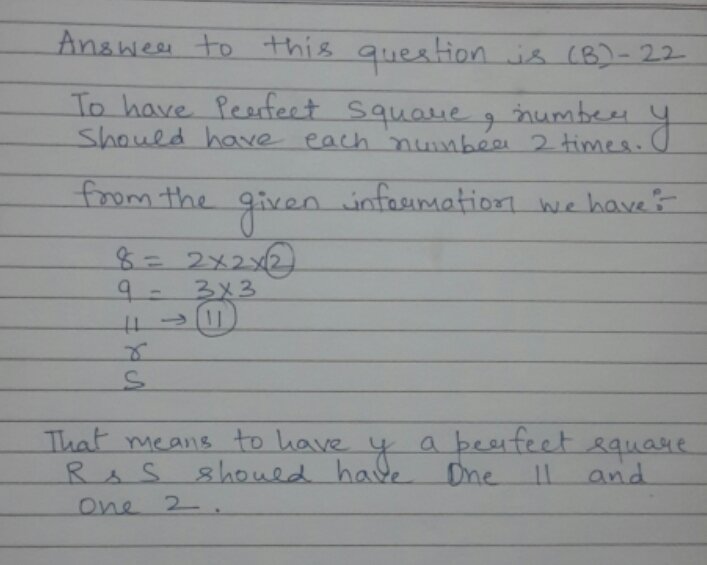 Answer to this question is (B)-22
To have Perfect Square, number y
should have each number 2 times.
from the given information we have:-
8 = 2×2×2
9 = 3×3
11 → 11
r
S
That means to have y a perfect square
R & S should have One 11 and
one 2.